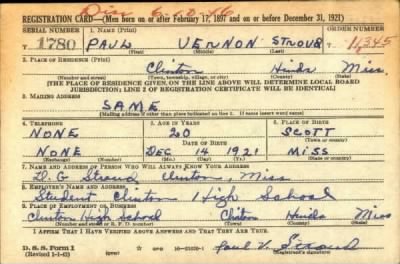 Dis 6-8-46
REGISTRATION CARD—(Men born on or after February 17, 1897 and on or before December 31, 1921)
SERIAL NUMBER 1. NAME (Print) ORDER NUMBER
T 1780 PAUL VERNON STROUD T 11,345
(First) (Middle) (Last)
2. PLACE OF RESIDENCE (Print)
Clinton Hinds Miss.
(Number and street) (Town, township, village, or city) (County) (State)
[THE PLACE OF RESIDENCE GIVEN ON THE LINE ABOVE WILL DETERMINE LOCAL BOARD
JURISDICTION; LINE 2 OF REGISTRATION CERTIFICATE WILL BE IDENTICAL]
3. MAILING ADDRESS
SAME
[Mailing address if other than place indicated on line 2. If same insert word same]
4. TELEPHONE 5. AGE IN YEARS 6. PLACE OF BIRTH
NONE 20 SCOTT
DATE OF BIRTH (Town or county)
NONE DEC 14 1921 MISS
(Exchange) (Number) (Mo.) (Day) (Yr.) (State or country)
7. NAME AND ADDRESS OF PERSON WHO WILL ALWAYS KNOW YOUR ADDRESS
D. G Stroud Clinton Miss
8. EMPLOYER'S NAME AND ADDRESS
Student Clinton High School
9. PLACE OF EMPLOYMENT OR BUSINESS
Clinton High School Clinton Hinds Miss
(Number and street or R. F. D. number) (Town) (County) (State)
I AFFIRM THAT I HAVE VERIFIED ABOVE ANSWERS AND THAT THEY ARE TRUE.
D. S. S. Form 1
(Revised 1-1-42) Paul V. Stroud
(Registrant's signature)